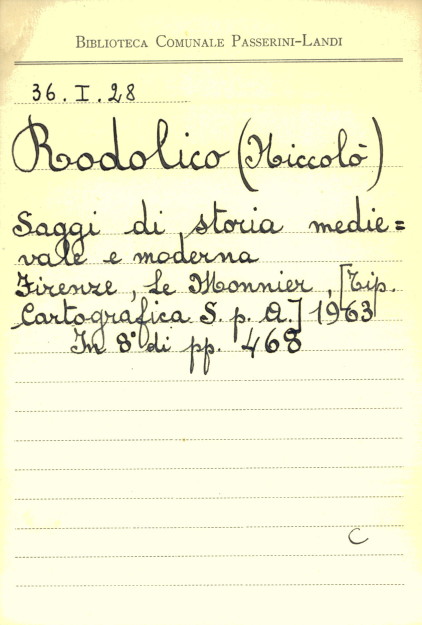 BIBLIOTECA COMUNALE PASSERINI-LANDI
36. I. 28
Rodolico (Niccolò)
Saggi di storia medie=
vale e moderna
Firenze, Le Monnier, [Tip.
Cartografica S. p. A.] 1963
In 8° di pp. 468
C